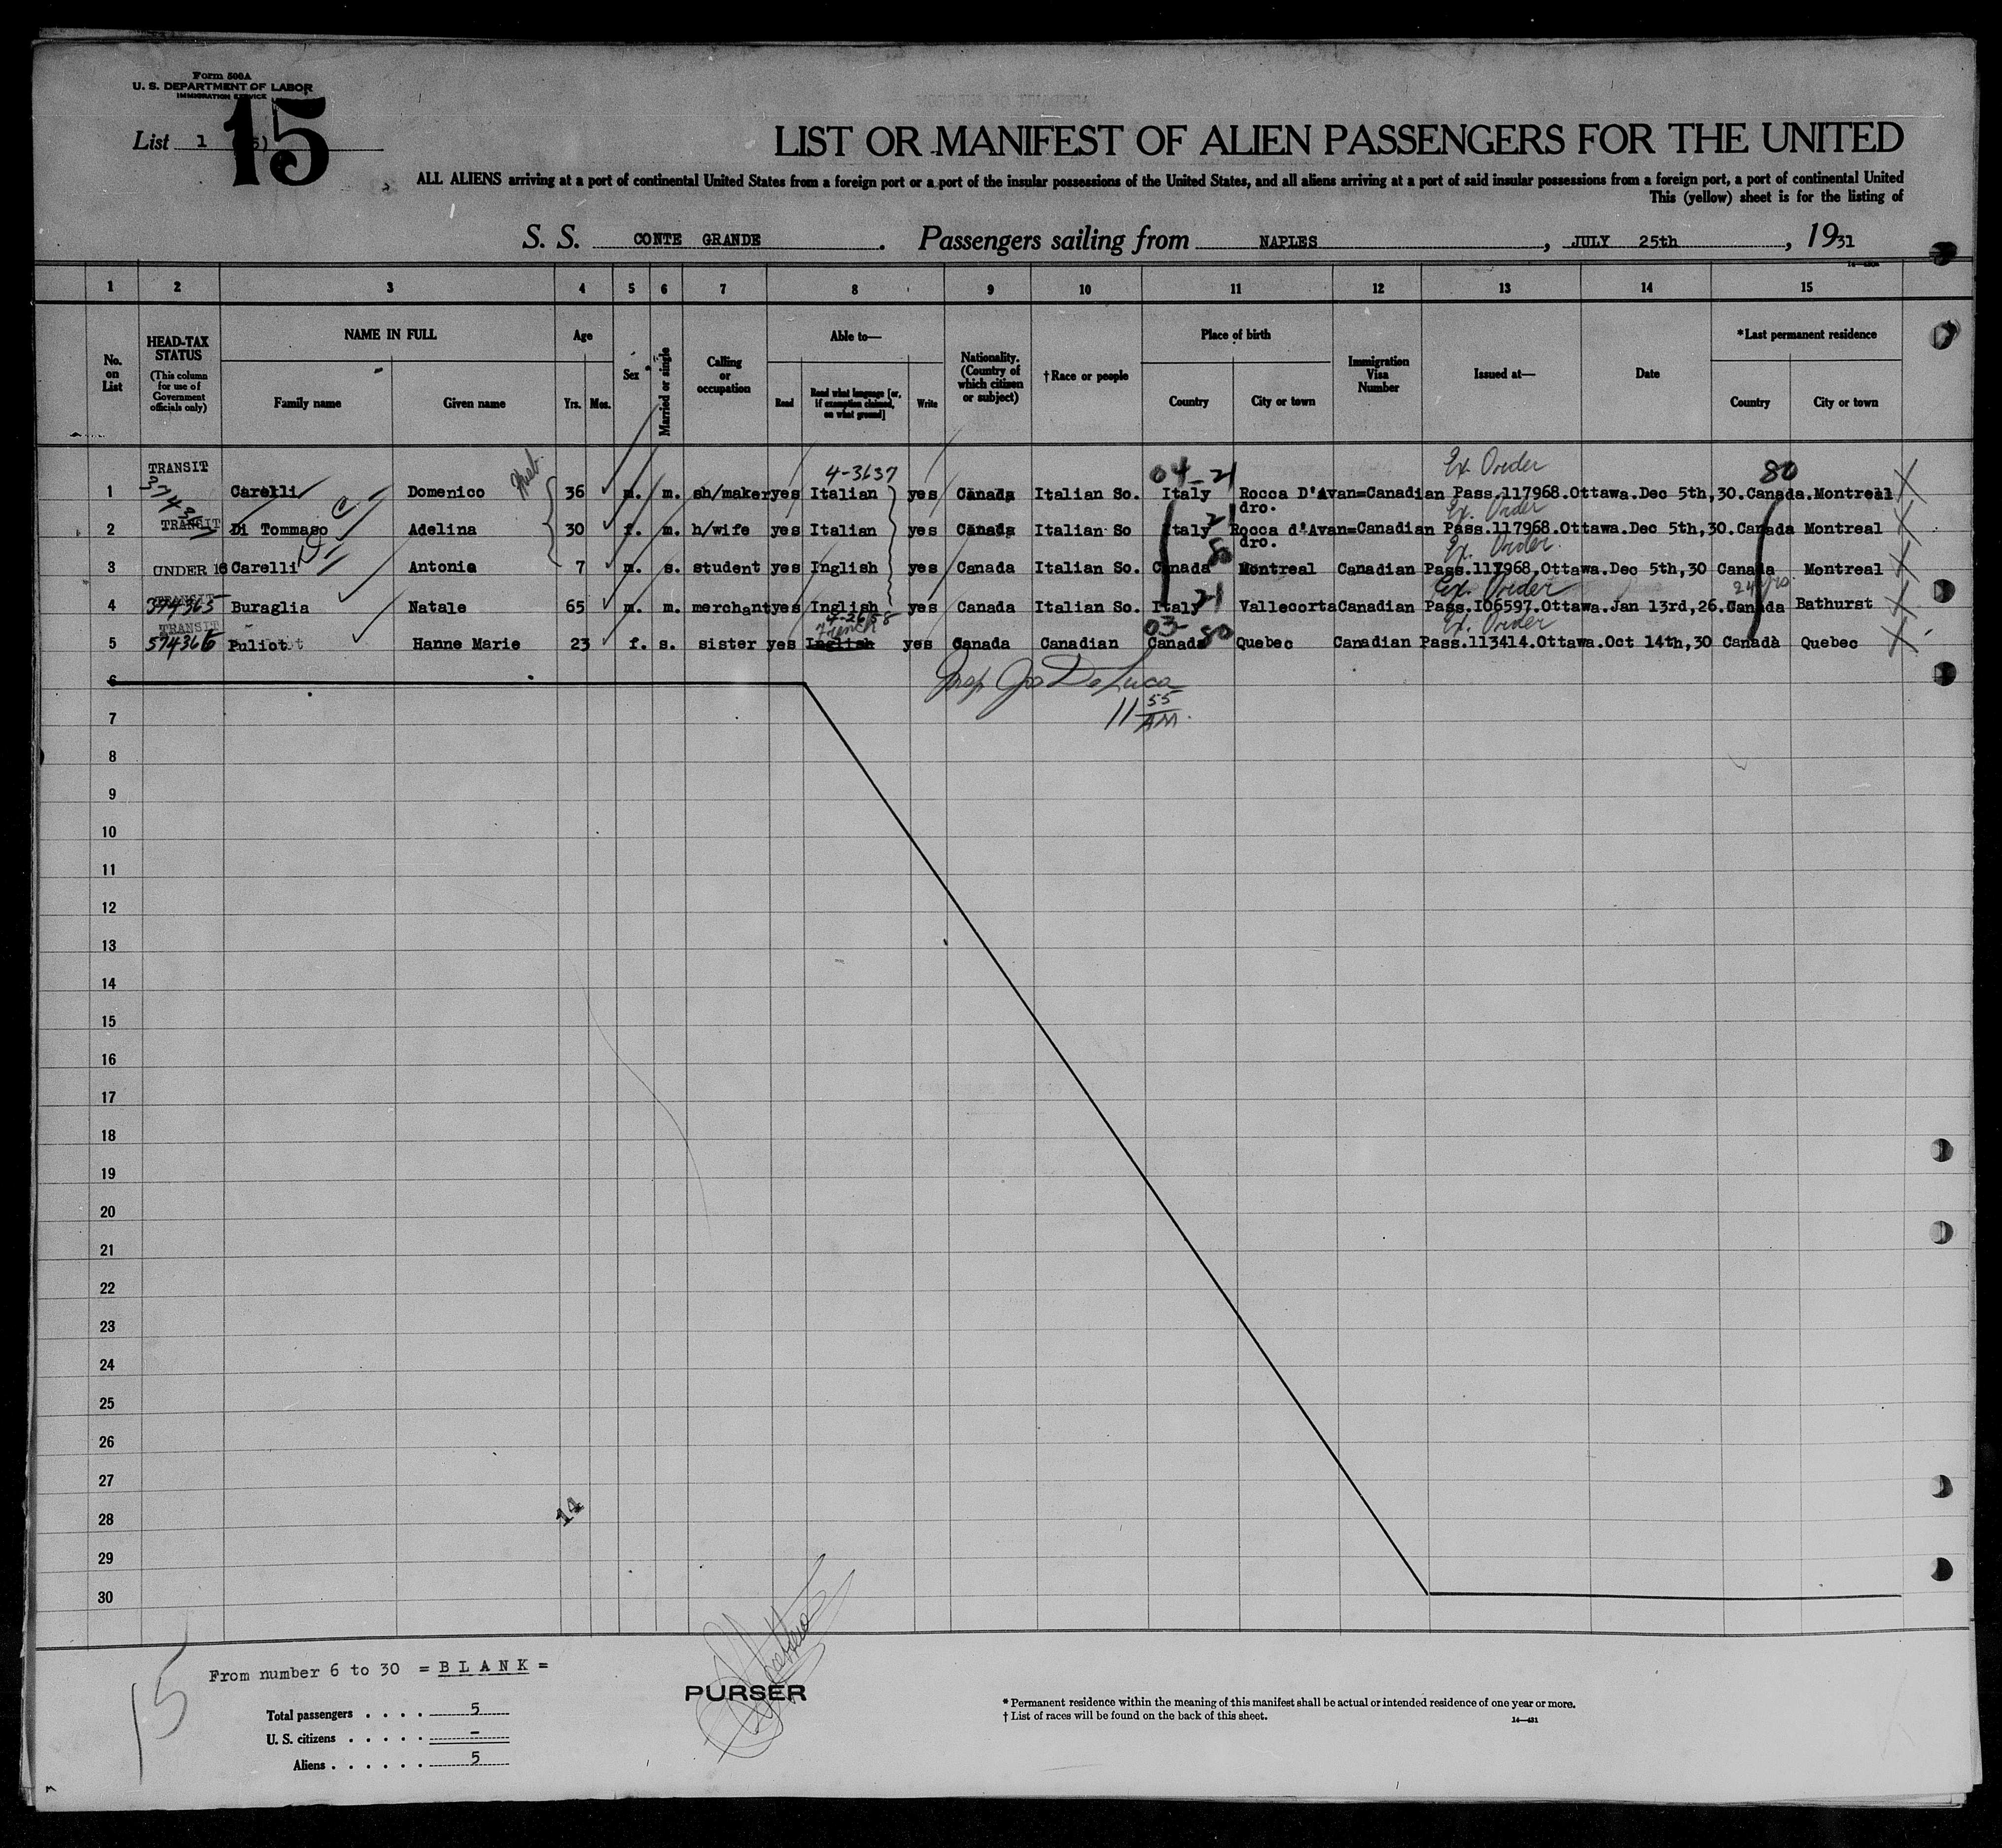 Form 500A
U. S. DEPARTMENT OF LABOR
IMMIGRATION SERVICE
List 1
15
LIST OR MANIFEST OF ALIEN PASSENGERS FOR THE UNITED
ALL ALIENS arriving at a port of continental United States from a foreign port or a port of the insular possessions of the United States, and all aliens arriving at a port of said insular possessions from a foreign port, a port of continental United
This (yellow) sheet is for the listing of
S. S. CONTE GRANDE. Passengers sailing from NAPLES, JULY 25th, 1931
1 2 3 4 5 6 7 8 9 10 11 12 13 14 15
No. on List
HEAD-TAX STATUS (This column for use of Government officials only)
NAME IN FULL
Family name Given name
Age
Yrs. Mos.
Sex
Married or single
Calling or occupation
Able to—
Read Read what language [or, if exemption claimed, on what ground] Write
Nationality. (Country of which citizen or subject)
†Race or people
Place of birth
Country City or town
Immigration Visa Number
Issued at—
Date
*Last permanent residence
Country City or town
TRANSIT 4-3637 04-21 Ex. Order 80
1 Carelli Domenico 36 m. m. sh/maker yes Italian yes Canada Italian So. Italy Rocca D'Avan=Canadian Pass.117968.Ottawa.Dec 5th,30.Canada.Montreal
dro. Ex. Order
TRANSIT 21
2 Di Tommaso Adelina 30 f. m. h/wife yes Italian yes Canada Italian So Italy Rocca d'Avan=Canadian Pass.117968.Ottawa.Dec 5th,30.Canada Montreal
dro. Ex. Order
80
3 UNDER 16 Carelli Antonia 7 m. s. student yes Inglish yes Canada Italian So. Canada Montreal Canadian Pass.117968,Ottawa.Dec 5th,30 Canada Montreal
TRANSIT 21 Ex. Order 24 yrs.
4 374365 Buraglia Natale 65 m. m. merchant yes Inglish yes Canada Italian So. Italy Vallecorta Canadian Pass.I06597.Ottawa.Jan 13rd,26.Canada Bathurst
TRANSIT 4-2658 French 03-80 Ex. Order
5 574366 Puliot Hanne Marie 23 f. s. sister yes Inglish yes Canada Canadian Canada Quebec Canadian Pass.113414.Ottawa.Oct 14th,30 Canada Quebec
6
Insp Jos De Luca
11 55 AM.
7
8
9
10
11
12
13
14
15
16
17
18
19
20
21
22
23
24
25
26
27
28
14
29
30
15
From number 6 to 30 = B L A N K =
Total passengers . . . . 5
U. S. citizens . . . . . –
Aliens . . . . . . 5
PURSER
* Permanent residence within the meaning of this manifest shall be actual or intended residence of one year or more.
† List of races will be found on the back of this sheet.